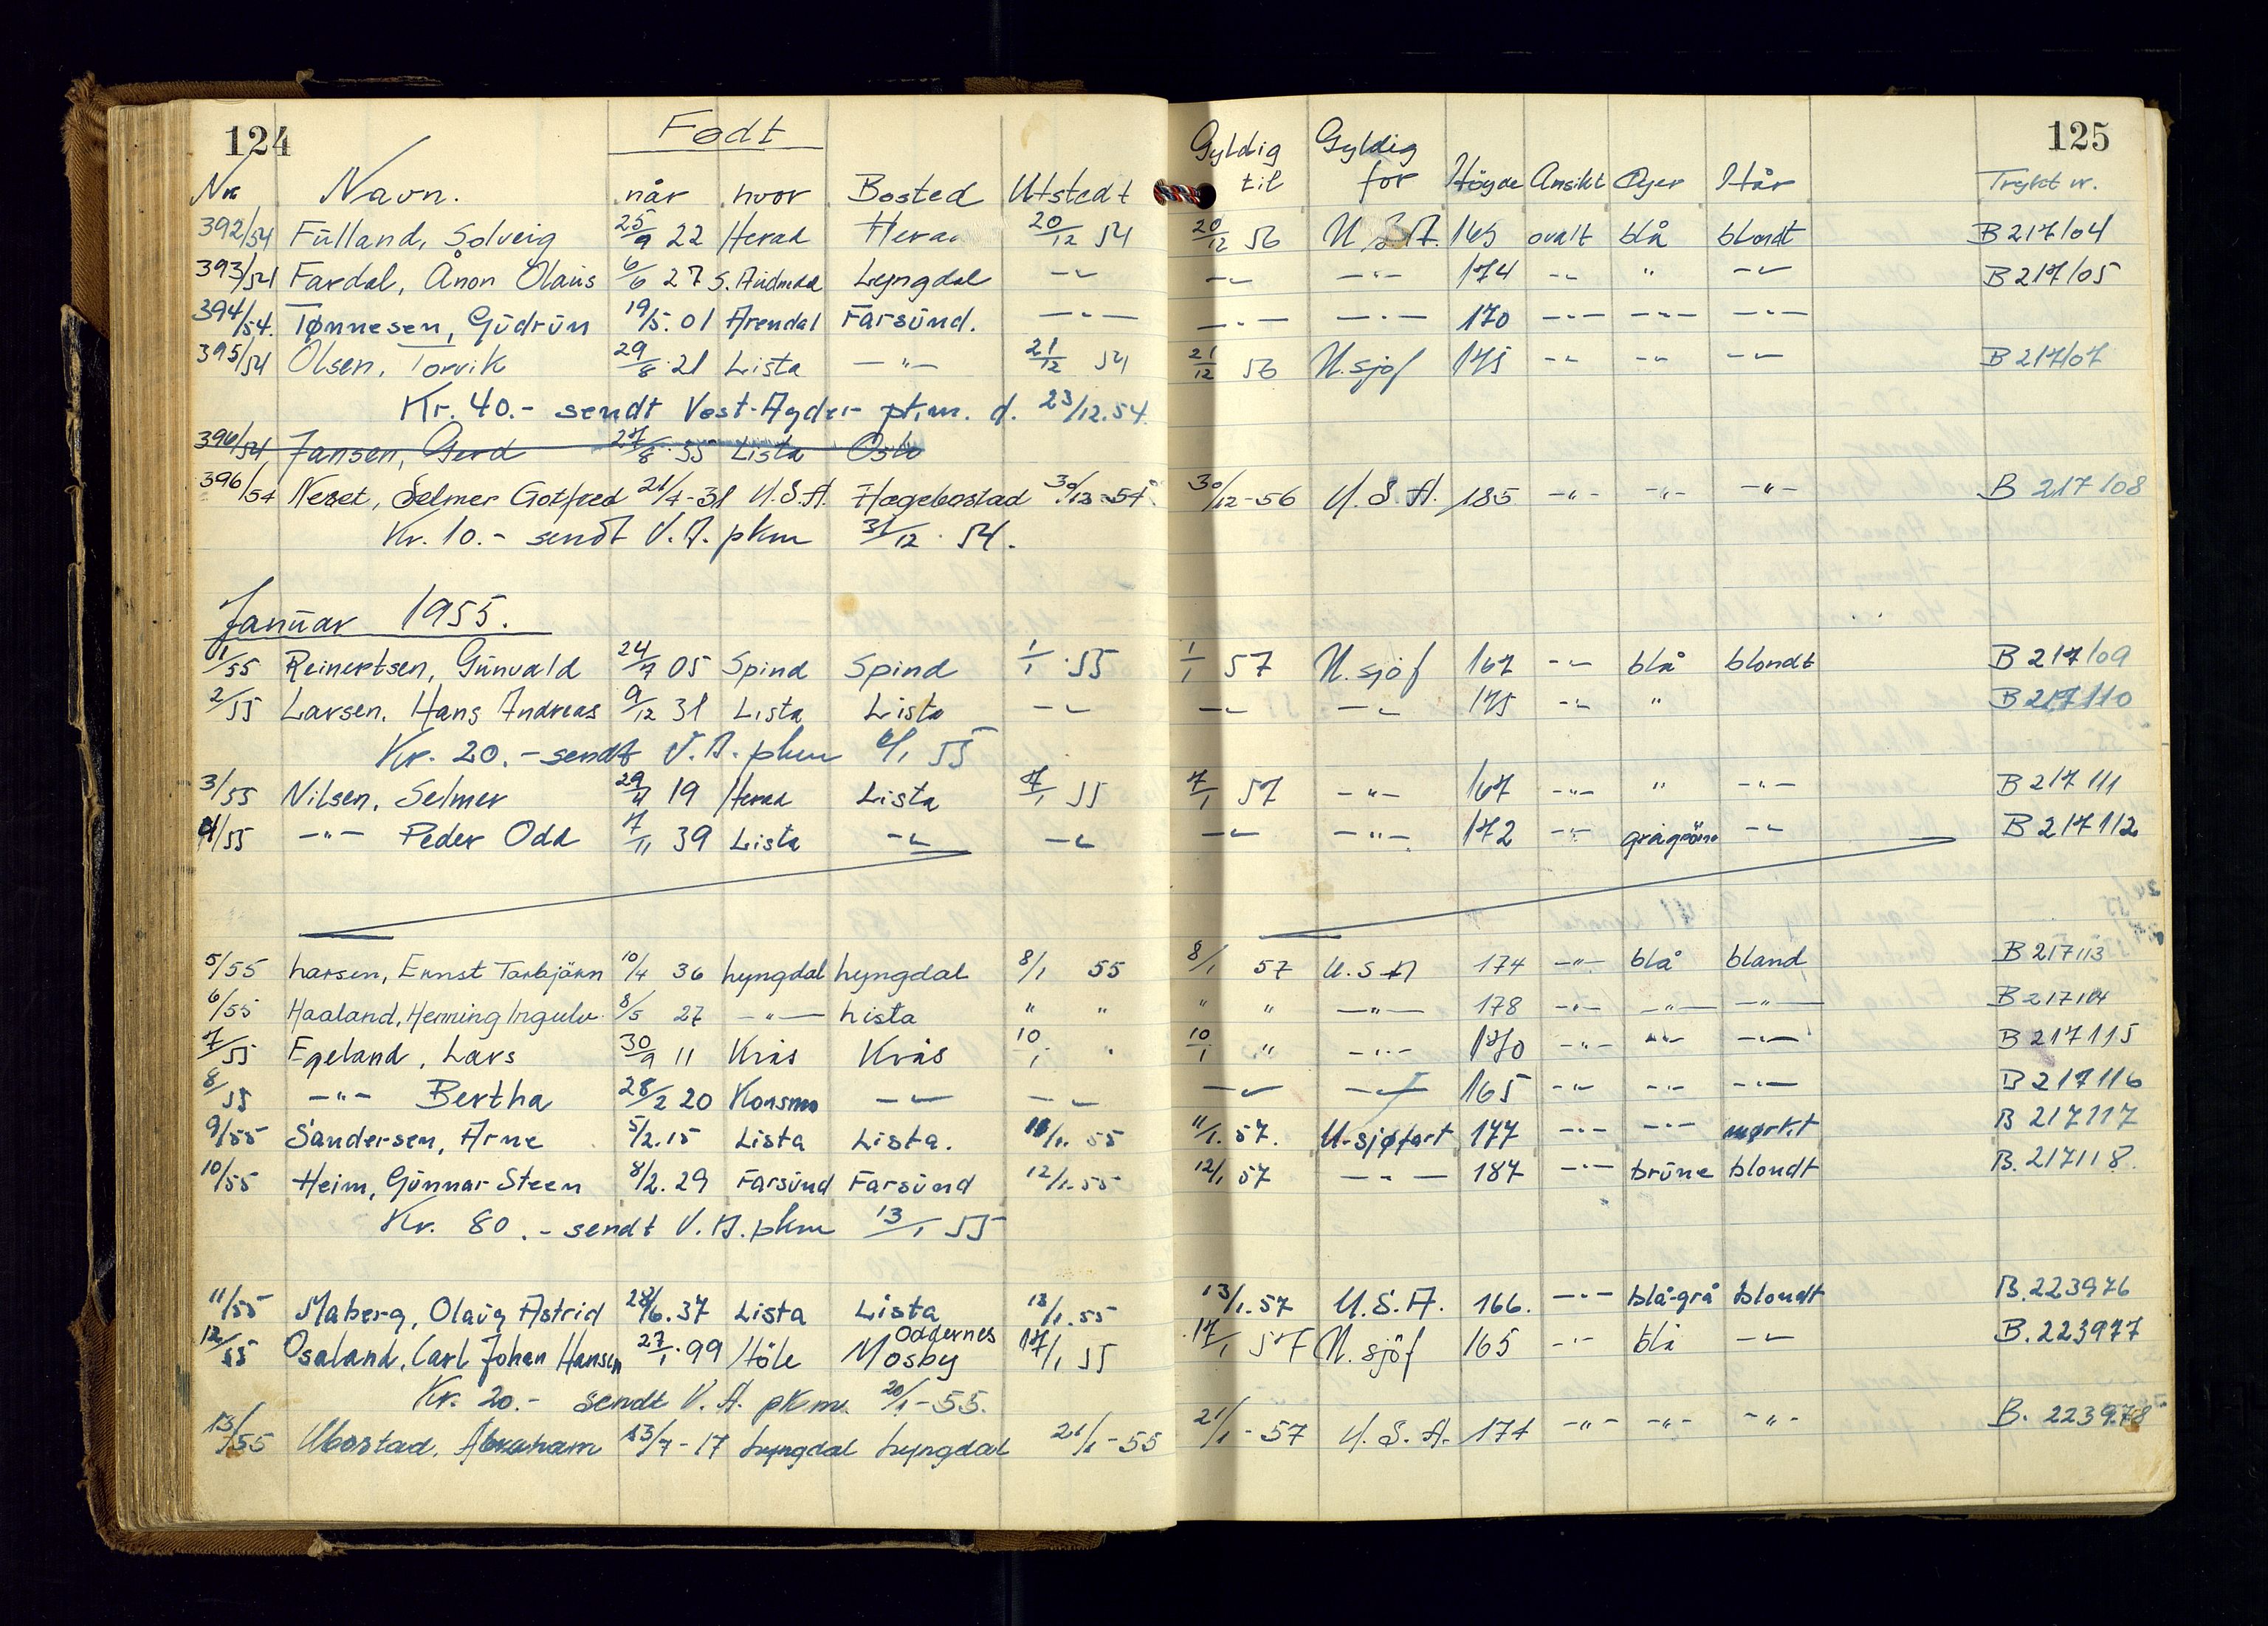 124 Født 125
Nr. Navn. når hvor Bosted Utstedt Gyldig til Gyldig for Höyde Ansikt Øyer Hår Trykt nr.
392/54 Fulland, Solveig 25/9 22 Herad Hera 20/12 54 20/12 56 U.S.A. 165 ovalt blå blondt B 217104
393/54 Fardal, Ånon Olaus 6/6 27 S. Audnedal Lyngdal -"- -"- -"- 174 -"- " -"- B 217105
394/54. Tønnesen, Gudrun 19/5. 01 Arendal Farsund. -"- -"- -"- 170 -"- -"- -"-
395/54 Olsen, Torvik 29/8 21 Lista -"- 21/12 54 21/12 56 U.sjöf 175 -"- -"- -"- B 217107
Kr. 40.- sendt Vest-Agder pkm. d. 23/12.54.
396/54 Jansen, Gerd 27/8. 35 Lista Oslo
396/54 Neset, Selmer Gotfred 21/4-31 U.S.A. Hægebostad 30/12-54. 30/12-56 U.S.A. 185 -"- -"- -"- B 217108
Kr. 10.- sendt V.A. pkm 31/12. 54.
Januar 1955.
1/55 Reinertsen, Gunvald 24/7 05 Spind Spind 1/1. 55 1/1 57 U.sjöf 167 -"- blå blondt B 217109
2/55 Larsen, Hans Andreas 9/12 31 Lista Lista -"- -"- -"- 175 -"- " B 217110
Kr. 20.- sendt V.A. pkm 6/1 55
3/55 Nilsen, Selmer 29/4 19 Herad Lista 7/1 55 7/1 57 -"- 167 -"- " -"- B 217111
4/55 -"- Peder Odd 7/11 39 Lista -"- -"- -"- -"- 172 -"- grågröne -"- B 217112
5/55 Larsen, Ernst Torbjörn 10/4 36 Lyngdal Lyngdal 8/1 55 8/1 57 U.S.A 174 -"- blå bland B 217113
6/55 Haaland, Henning Ingulv. 8/5 27 -"- Lista " " " " -"- 178 -"- -"- -"- B 217114
7/55 Egeland, Lars 30/9 11 Kvås Kvås 10/1 " 10/1 " -"- 170 -"- -"- -"- B 217115
8/55 -"- Bertha 28/2 20 Konsmo -"- -"- -"- -"- 165 -"- -"- -"- B 217116
9/55 Sandersen, Arne 5/2.15 Lista Lista. 11/1. 55 11/1. 57. U.sjøfart 177 -"- -"- mørkt B 217117
10/55 Heim, Gunnar Steen 8/2. 29 Farsund Farsund 12/1.55 12/1 57 -"- 187 -"- brune blondt B. 217118.
Kr. 80.- sendt V.A. pkm 13/1 55
11/55 Maberg, Olaug Astrid 28/6.37 Lista Lista 13/1.55 13/1.57 U.S.A. 166. -"- blå-grå blondt B.223976
12/55 Osaland, Carl Johan Hansen 27/1. 99 Höle Oddernes Mosby 17/1 55 17/1 57 U.sjöf 165 -"- blå -"- B.223977
Kr. 20.- sendt V.A. pkm. 20/1-55.
13/55 Ubostad, Abraham 13/7-17 Lyngdal Lyngdal 21/1-55 21/1-57 U.S.A. 174 -"- -"- -"- B. 223978